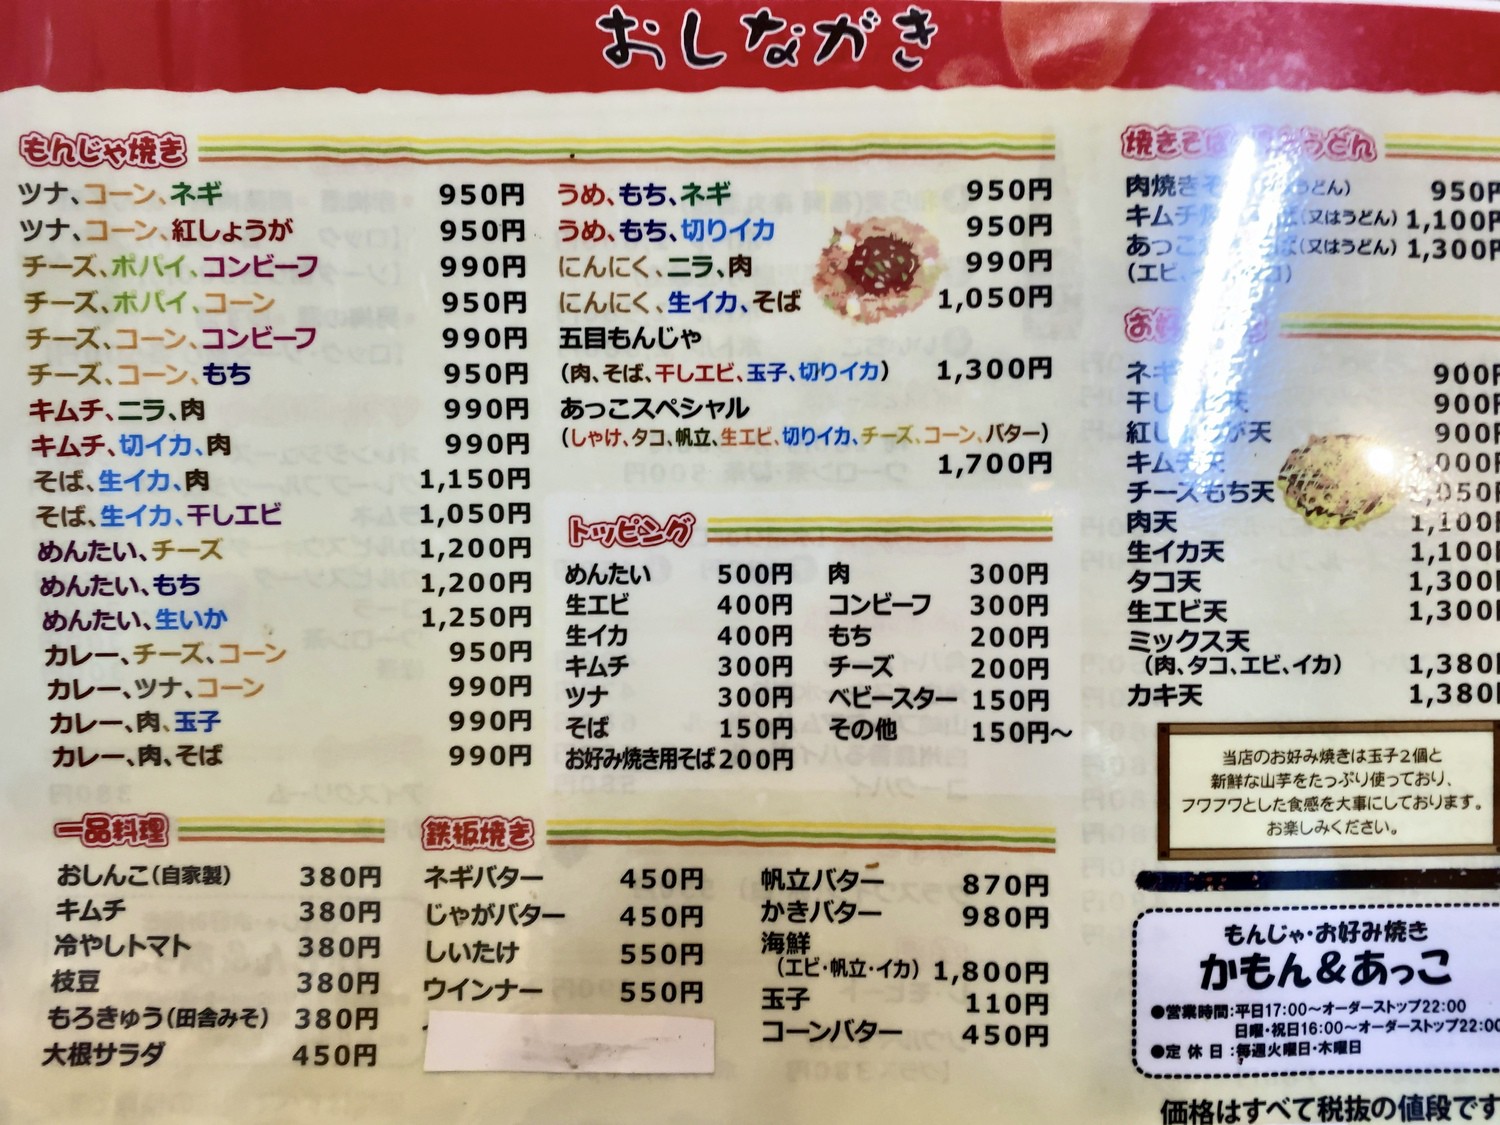 おしながき
もんじゃ焼き
ツナ、コーン、ネギ 950円
ツナ、コーン、紅しょうが 950円
チーズ、ポパイ、コンビーフ 990円
チーズ、ポパイ、コーン 950円
チーズ、コーン、コンビーフ 990円
チーズ、コーン、もち 950円
キムチ、ニラ、肉 990円
キムチ、切イカ、肉 990円
そば、生イカ、肉 1,150円
そば、生イカ、干しエビ 1,050円
めんたい、チーズ 1,200円
めんたい、もち 1,200円
めんたい、生いか 1,250円
カレー、チーズ、コーン 950円
カレー、ツナ、コーン 990円
カレー、肉、玉子 990円
カレー、肉、そば 990円
うめ、もち、ネギ 950円
うめ、もち、切りイカ 950円
にんにく、ニラ、肉 990円
にんにく、生イカ、そば 1,050円
五目もんじゃ
(肉、そば、干しエビ、玉子、切りイカ) 1,300円
あっこスペシャル
(しゃけ、タコ、帆立、生エビ、切りイカ、チーズ、コーン、バター)
1,700円
トッピング
めんたい 500円
生エビ 400円
生イカ 400円
キムチ 300円
ツナ 300円
そば 150円
お好み焼き用そば 200円
肉 300円
コンビーフ 300円
もち 200円
チーズ 200円
ベビースター 150円
その他 150円〜
一品料理
おしんこ(自家製) 380円
キムチ 380円
冷やしトマト 380円
枝豆 380円
もろきゅう(田舎みそ) 380円
大根サラダ 450円
鉄板焼き
ネギバター 450円
じゃがバター 450円
しいたけ 550円
ウインナー 550円
帆立バター 870円
かきバター 980円
海鮮
(エビ・帆立・イカ) 1,800円
玉子 110円
コーンバター 450円
焼きそば うどん
肉焼きそ うどん) 950円
キムチ (又はうどん) 1,100円
あっこ (又はうどん) 1,300円
(エビ、
お好
ネギ 900円
干し 天 900円
紅し 天 900円
キムチ天 000円
チーズもち天 050円
肉天 1,100円
生イカ天 1,100円
タコ天 1,300円
生エビ天 1,300円
ミックス天
(肉、タコ、エビ、イカ) 1,380円
カキ天 1,380円
当店のお好み焼きは玉子2個と
新鮮な山芋をたっぷり使っており、
フワフワとした食感を大事にしております。
お楽しみください。
もんじゃ・お好み焼き
かもん&あっこ
●営業時間:平日17:00〜オーダーストップ22:00
日曜・祝日16:00〜オーダーストップ22:00
●定休日:毎週火曜日・木曜日
価格はすべて税抜の値段です